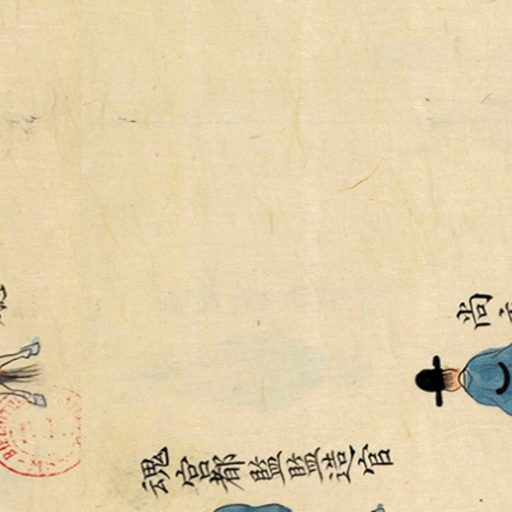 魂宮都監監造官
尚